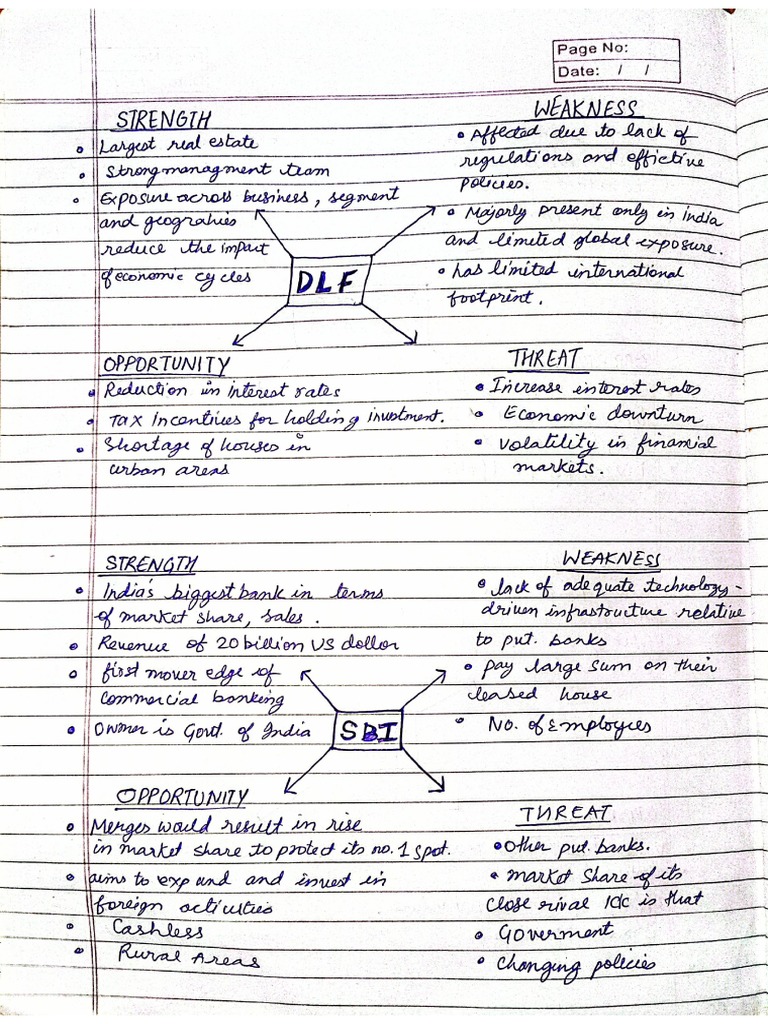 Page No:
Date: / /
STRENGTH
• Largest real estate
• Strong managment team
• Exposure across business, segment
and geograhies
reduce the impact
of economic cycles
WEAKNESS
• Affected due to lack of
regulations and effictive
policies.
• Majorly present only in india
and limited global exposure.
• has limited international
footprint.
DLF
OPPORTUNITY
• Reduction in interest rates
• Tax Incentives for holding investment.
• Shortage of houses in
urban areas
THREAT
• Increase interest rates
• Economic downturn
• Volatility in financial
markets.
STRENGTH
• India's biggest bank in terms
of market share, sales.
• Revenue of 20 billion US dollor
• first mover edge of
commercial banking
• Owner is Govt. of India
WEAKNESS
• lack of adequate technology-
driven infrastructure relative
to put. banks
• pay large sum on their
leased house
• No. of Employees
SBI
OPPORTUNITY
• Merges would result in rise
in market share to protect its no. 1 spot.
• aims to expand and invest in
foreign activities
• Cashless
• Rural Areas
THREAT
• Other put. banks.
• market share of its
close rival is that
• Goverment
• Changing policies